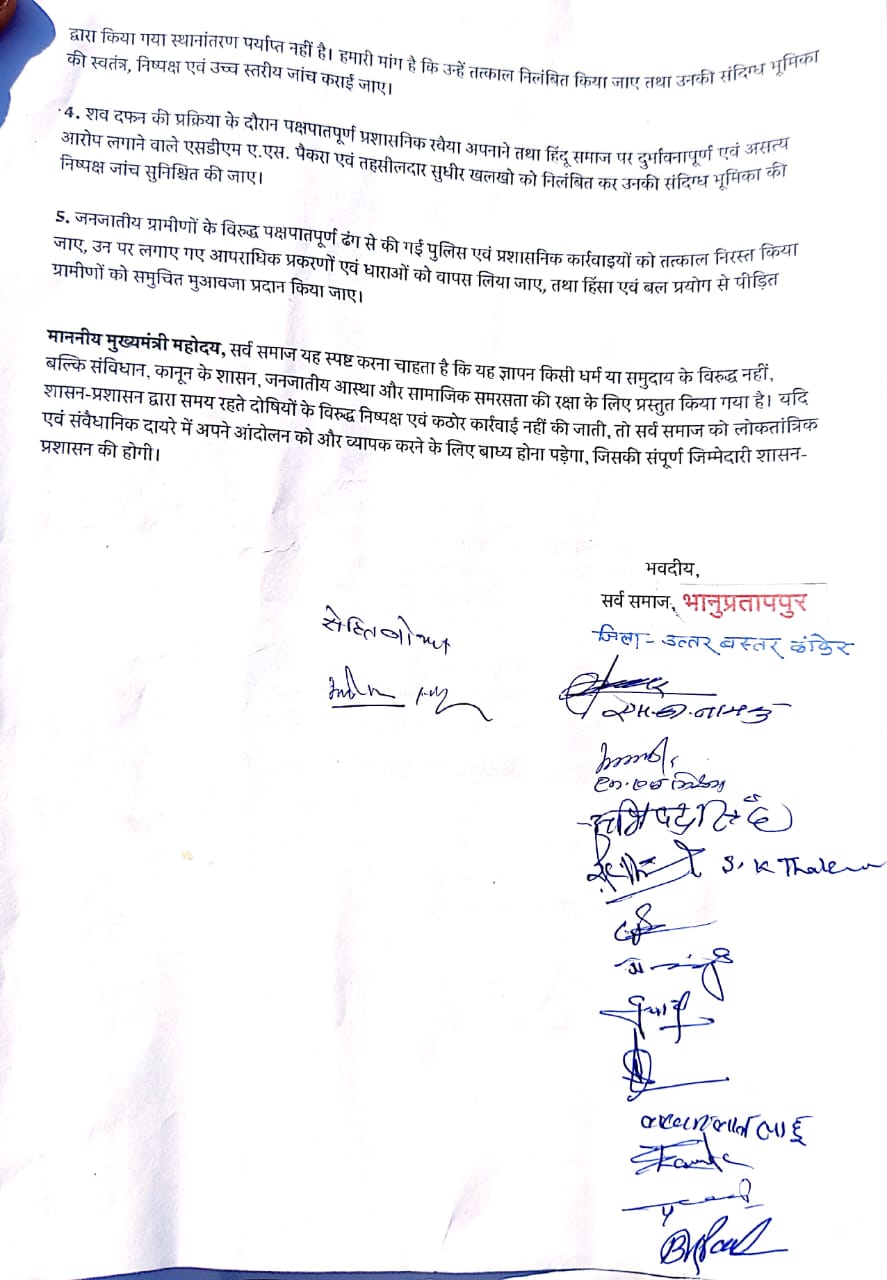 द्वारा किया गया स्थानांतरण पर्याप्त नहीं है। हमारी मांग है कि उन्हें तत्काल निलंबित किया जाए तथा उनकी संदिग्ध भूमिका
की स्वतंत्र, निष्पक्ष एवं उच्च स्तरीय जांच कराई जाए।
4. शव दफन की प्रक्रिया के दौरान पक्षपातपूर्ण प्रशासनिक रवैया अपनाने तथा हिंदू समाज पर दुर्भावनापूर्ण एवं असत्य
आरोप लगाने वाले एसडीएम ए.एस. पैकरा एवं तहसीलदार सुधीर खलखो को निलंबित कर उनकी संदिग्ध भूमिका की
निष्पक्ष जांच सुनिश्चित की जाए।
5. जनजातीय ग्रामीणों के विरुद्ध पक्षपातपूर्ण ढंग से की गई पुलिस एवं प्रशासनिक कार्रवाइयों को तत्काल निरस्त किया
जाए, उन पर लगाए गए आपराधिक प्रकरणों एवं धाराओं को वापस लिया जाए, तथा हिंसा एवं बल प्रयोग से पीड़ित
ग्रामीणों को समुचित मुआवजा प्रदान किया जाए।
माननीय मुख्यमंत्री महोदय, सर्व समाज यह स्पष्ट करना चाहता है कि यह ज्ञापन किसी धर्म या समुदाय के विरुद्ध नहीं,
बल्कि संविधान, कानून के शासन, जनजातीय आस्था और सामाजिक समरसता की रक्षा के लिए प्रस्तुत किया गया है। यदि
शासन-प्रशासन द्वारा समय रहते दोषियों के विरुद्ध निष्पक्ष एवं कठोर कार्रवाई नहीं की जाती, तो सर्व समाज को लोकतांत्रिक
एवं संवैधानिक दायरे में अपने आंदोलन को और व्यापक करने के लिए बाध्य होना पड़ेगा, जिसकी संपूर्ण जिम्मेदारी शासन-
प्रशासन की होगी।
भवदीय,
सर्व समाज, भानुप्रतापपुर
जिला- उत्तर बस्तर कांकेर
S. K